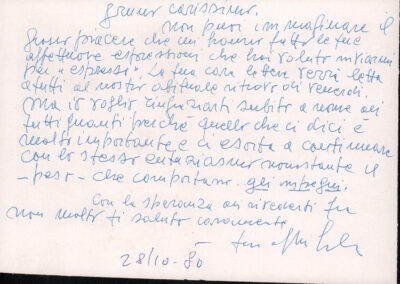 carissimo,
non puoi immaginare il
grosso piacere che mi hanno fatto le tue
affettuose espressioni che hai voluto inviarmi
per "espresso". La tua cara lettera verrà letta
a tutti al nostro abituale ritrovo di venerdì.
Ma io voglio ringraziarti subito a nome di
tutti quanti perché quello che ci dici è
molto importante e ci esorta a continuare
con lo stesso entusiasmo nonostante il
- peso - che comportano gli impegni.
Con la speranza di rivederti fra
non molto ti saluto caramente
28/10-80